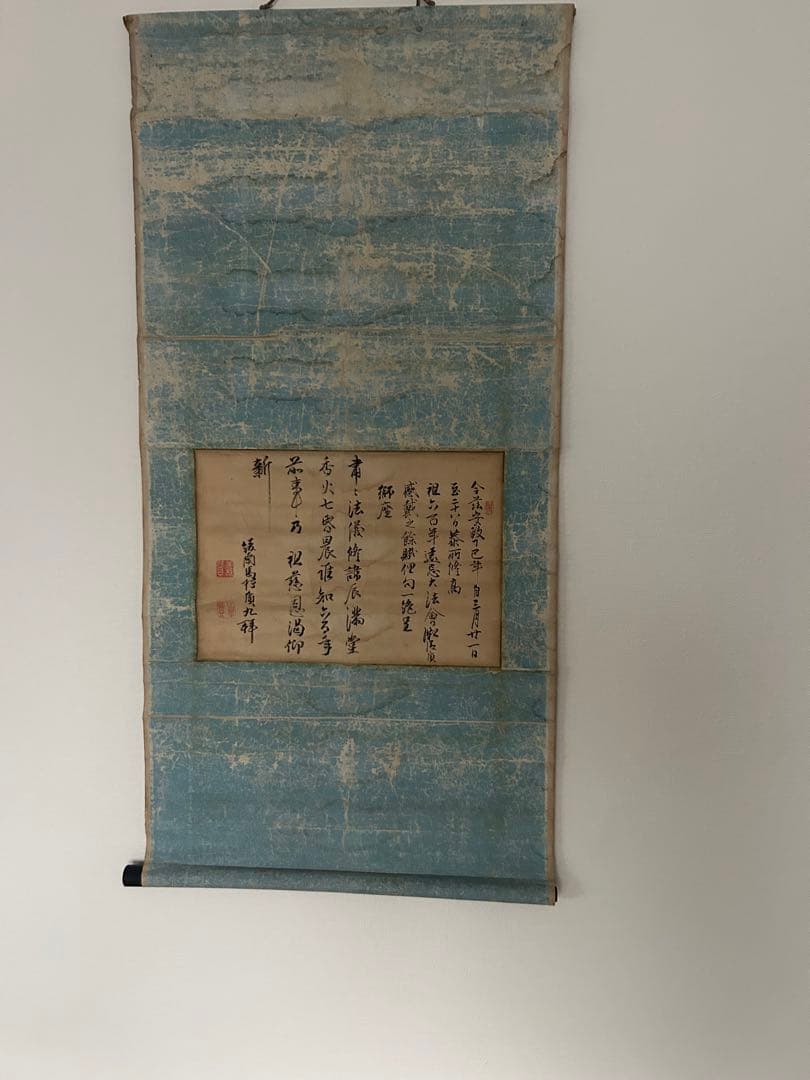 今茲安政丁巳年 自三月廿一日
至二十八日恭所修高
祖六百年遠忌大法會
感戴之餘賦俚句一絶呈
獅座
肅〻法儀修諱辰滿堂
香火七昬晨誰知六百年
前事乃祖慈恩渴仰
新
九拜